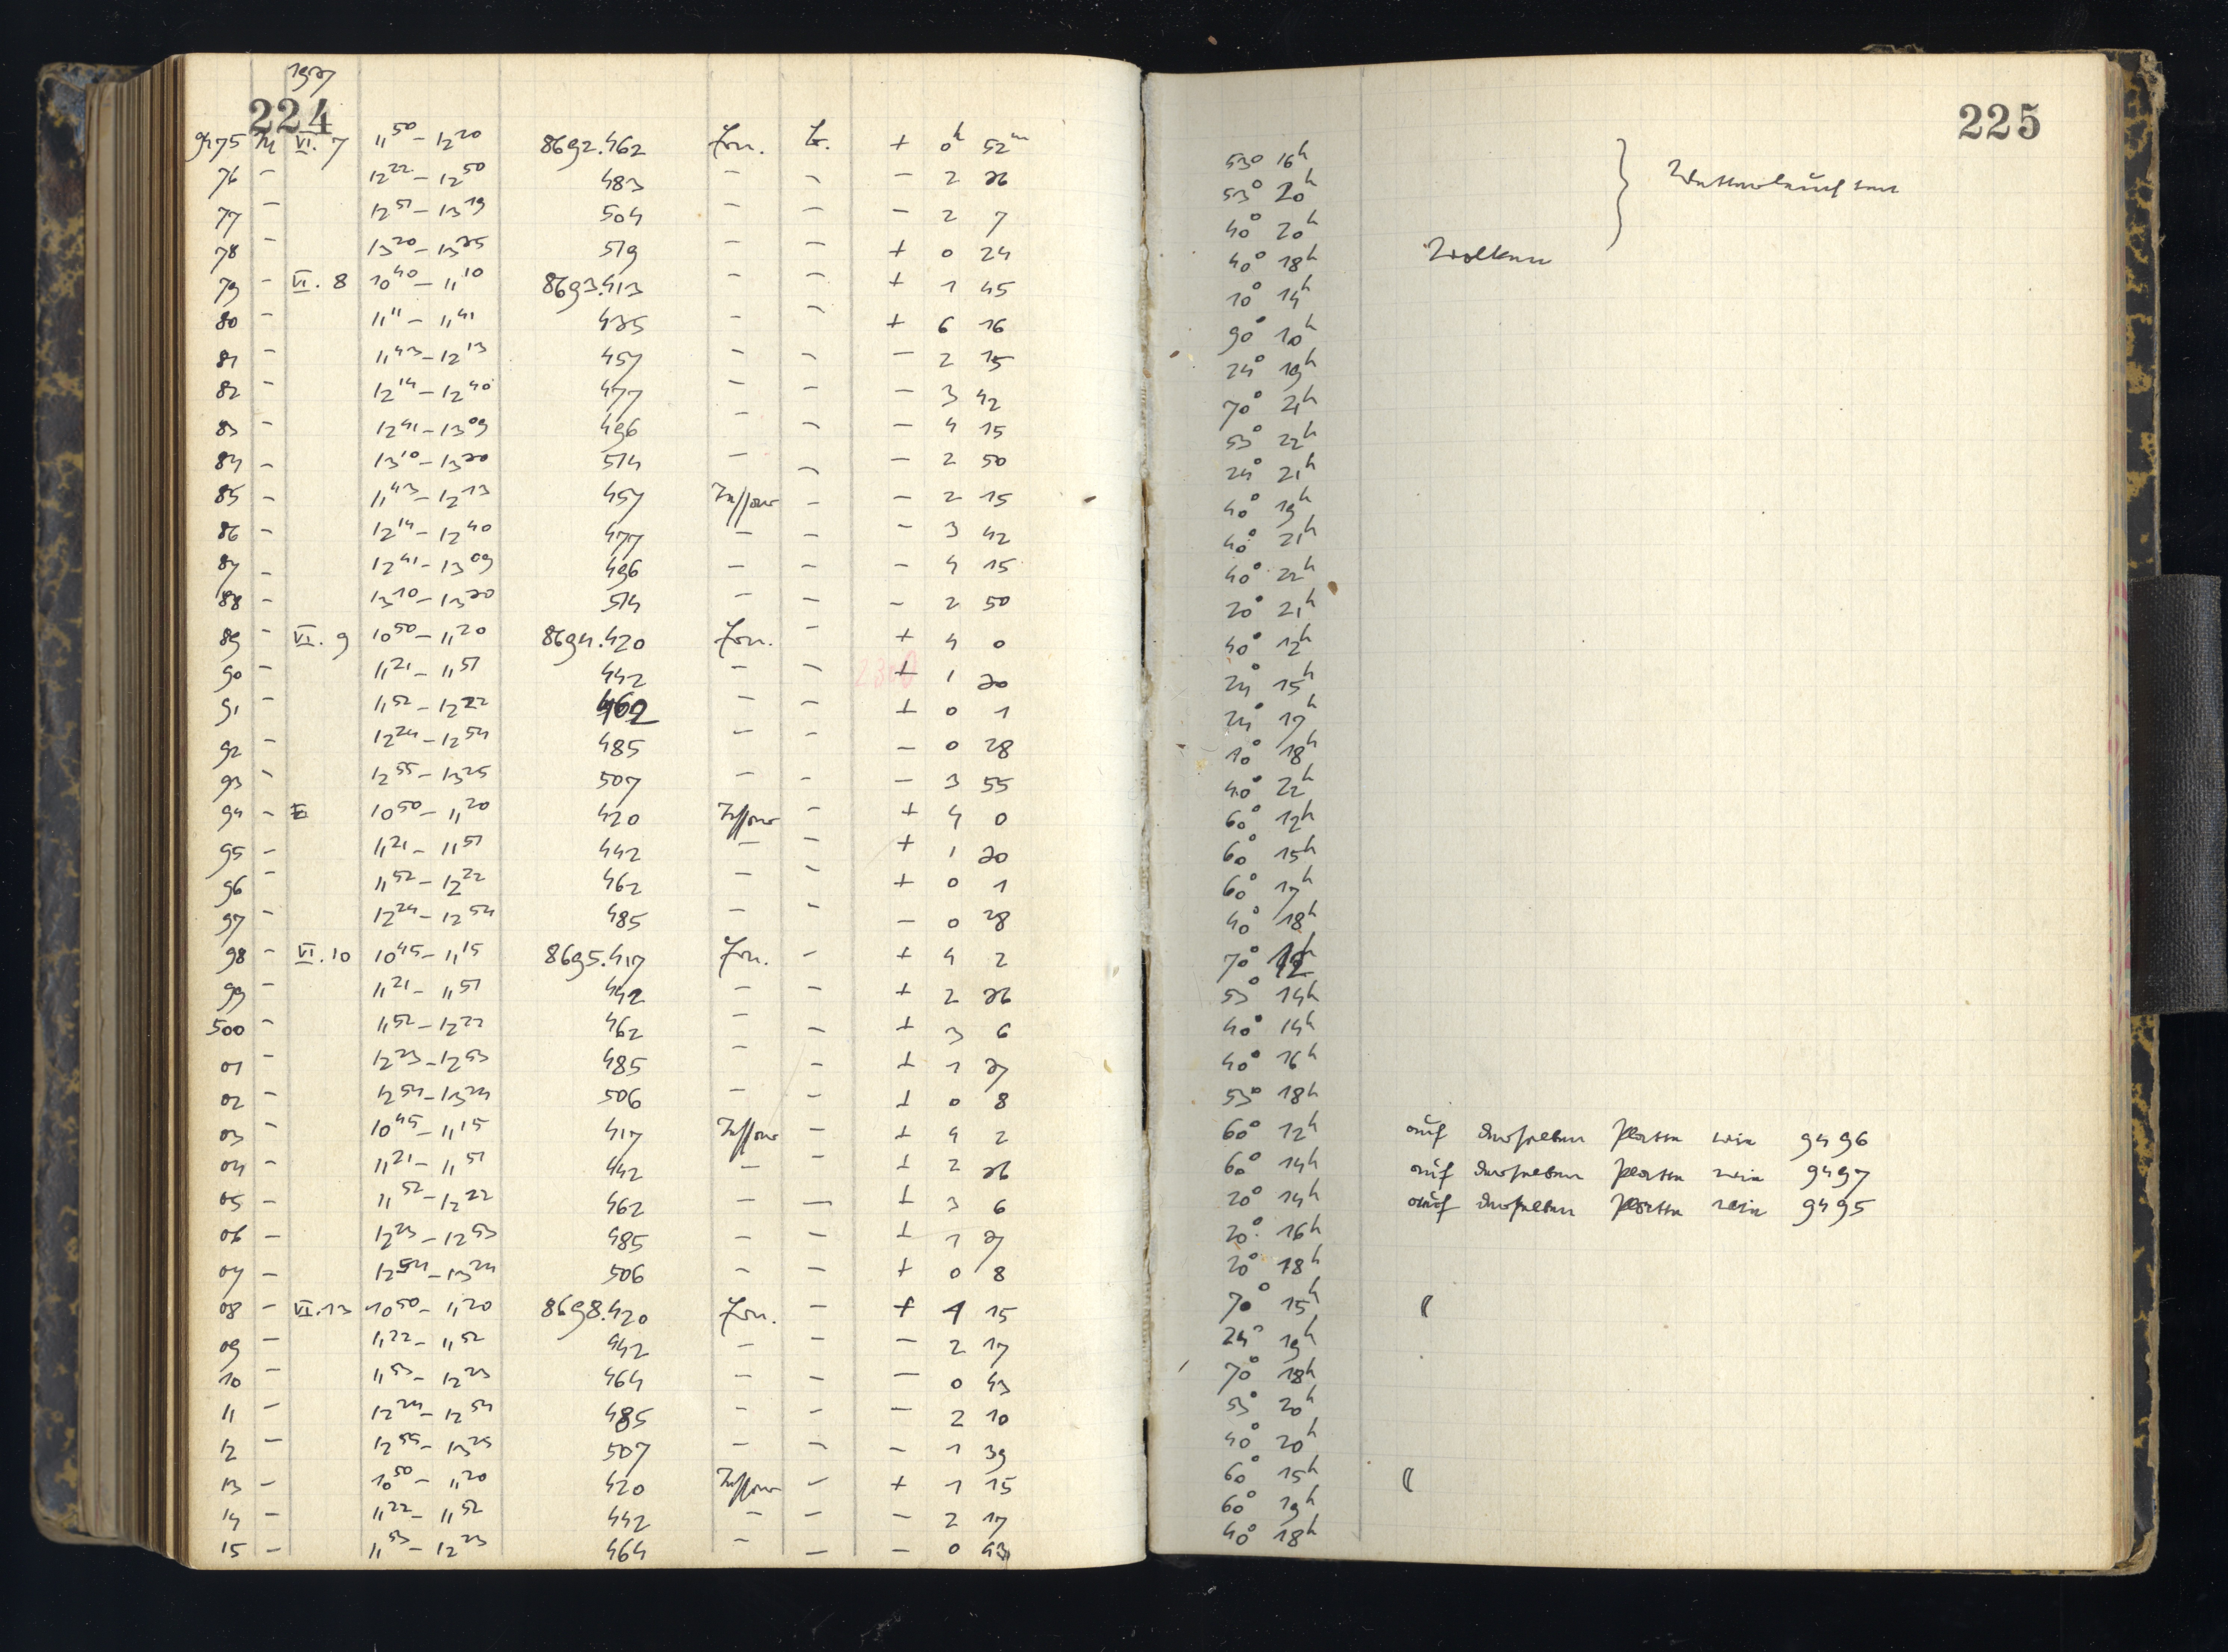 1927
224
225
9475 VI. 7 11 50 – 12 20 8692.462 + 0 h 52 m 53° 16 h
76 – 12 22 – 12 50 483 – – – 2 26 53° 20 h
77 – 12 51 – 13 19 504 – – – 2 7 40° 20 h
78 – 13 20 – 13 25 519 – – + 0 24 40° 18 h Wolken
79 – VI. 8 10 40 – 11 10 8693.413 – – + 1 45 10° 14 h
80 – 11 11 – 11 41 435 – – + 6 16 90° 10 h
81 – 11 43 – 12 13 457 – – – 2 15 24° 19 h
82 – 12 14 – 12 40 477 – – – 3 42 70° 21 h
83 – 12 41 – 13 09 496 – – – 4 15 53° 22 h
84 – 13 10 – 13 20 514 – – – 2 50 24° 21 h
85 – 11 43 – 12 13 457 – – 2 15 40° 19 h
86 – 12 14 – 12 40 477 – – – 3 42 40° 21 h
87 – 12 41 – 13 09 496 – – – 4 15 40° 22 h
88 – 13 10 – 13 20 514 – – – 2 50 20° 21 h
89 – VI. 9 10 50 – 11 20 8694.420 – + 4 0 40° 12 h
90 – 11 21 – 11 51 442 – – + 1 20 24° 15 h
91 – 11 52 – 12 22 462 – – + 0 1 24° 17 h
92 – 12 24 – 12 54 485 – – – 0 28 10° 18 h
93 – 12 55 – 13 25 507 – – – 3 55 40° 22 h
94 – 10 50 – 11 20 420 – + 4 0 60° 12 h
95 – 11 21 – 11 51 442 – – + 1 20 60° 15 h
96 – 11 52 – 12 22 462 – – + 0 1 60° 17 h
97 – 12 24 – 12 54 485 – – – 0 28 40° 18 h
98 – VI. 10 10 45 – 11 15 8695.417 – + 4 2 70° 12
99 – 11 21 – 11 51 442 – – + 2 26 53° 14 h
500 – 11 52 – 12 22 462 – – + 3 6 40° 14 h
01 – 12 23 – 12 53 485 – – + 1 27 40° 16 h
02 – 12 54 – 13 24 506 – – + 0 8 53° 18 h
03 – 10 45 – 11 15 417 – + 4 2 60° 12 h auf derselben Platte wie 9496
04 – 11 21 – 11 51 442 – – + 2 26 60° 14 h auf derselben Platte wie 9497
05 – 11 52 – 12 22 462 – – + 3 6 20° 14 h auf derselben Platte wie 9495
06 – 12 23 – 12 53 485 – – + 1 27 20° 16 h
07 – 12 54 – 13 24 506 – – + 0 8 20° 18 h
08 – VI. 13 10 50 – 11 20 8698.420 – + 1 15 70° 15 h (
09 – 11 22 – 11 52 442 – – – 2 17 24° 19 h
10 – 11 53 – 12 23 464 – – – 0 43 70° 18 h
11 – 12 24 – 12 54 485 – – – 2 10 53° 20 h
12 – 12 55 – 13 25 507 – – – 1 39 40° 20 h
13 – 10 50 – 11 20 420 – + 1 15 60° 15 h (
14 – 11 22 – 11 52 442 – – – 2 17 60° 19 h
15 – 11 53 – 12 23 464 – – – 0 43 40° 18 h